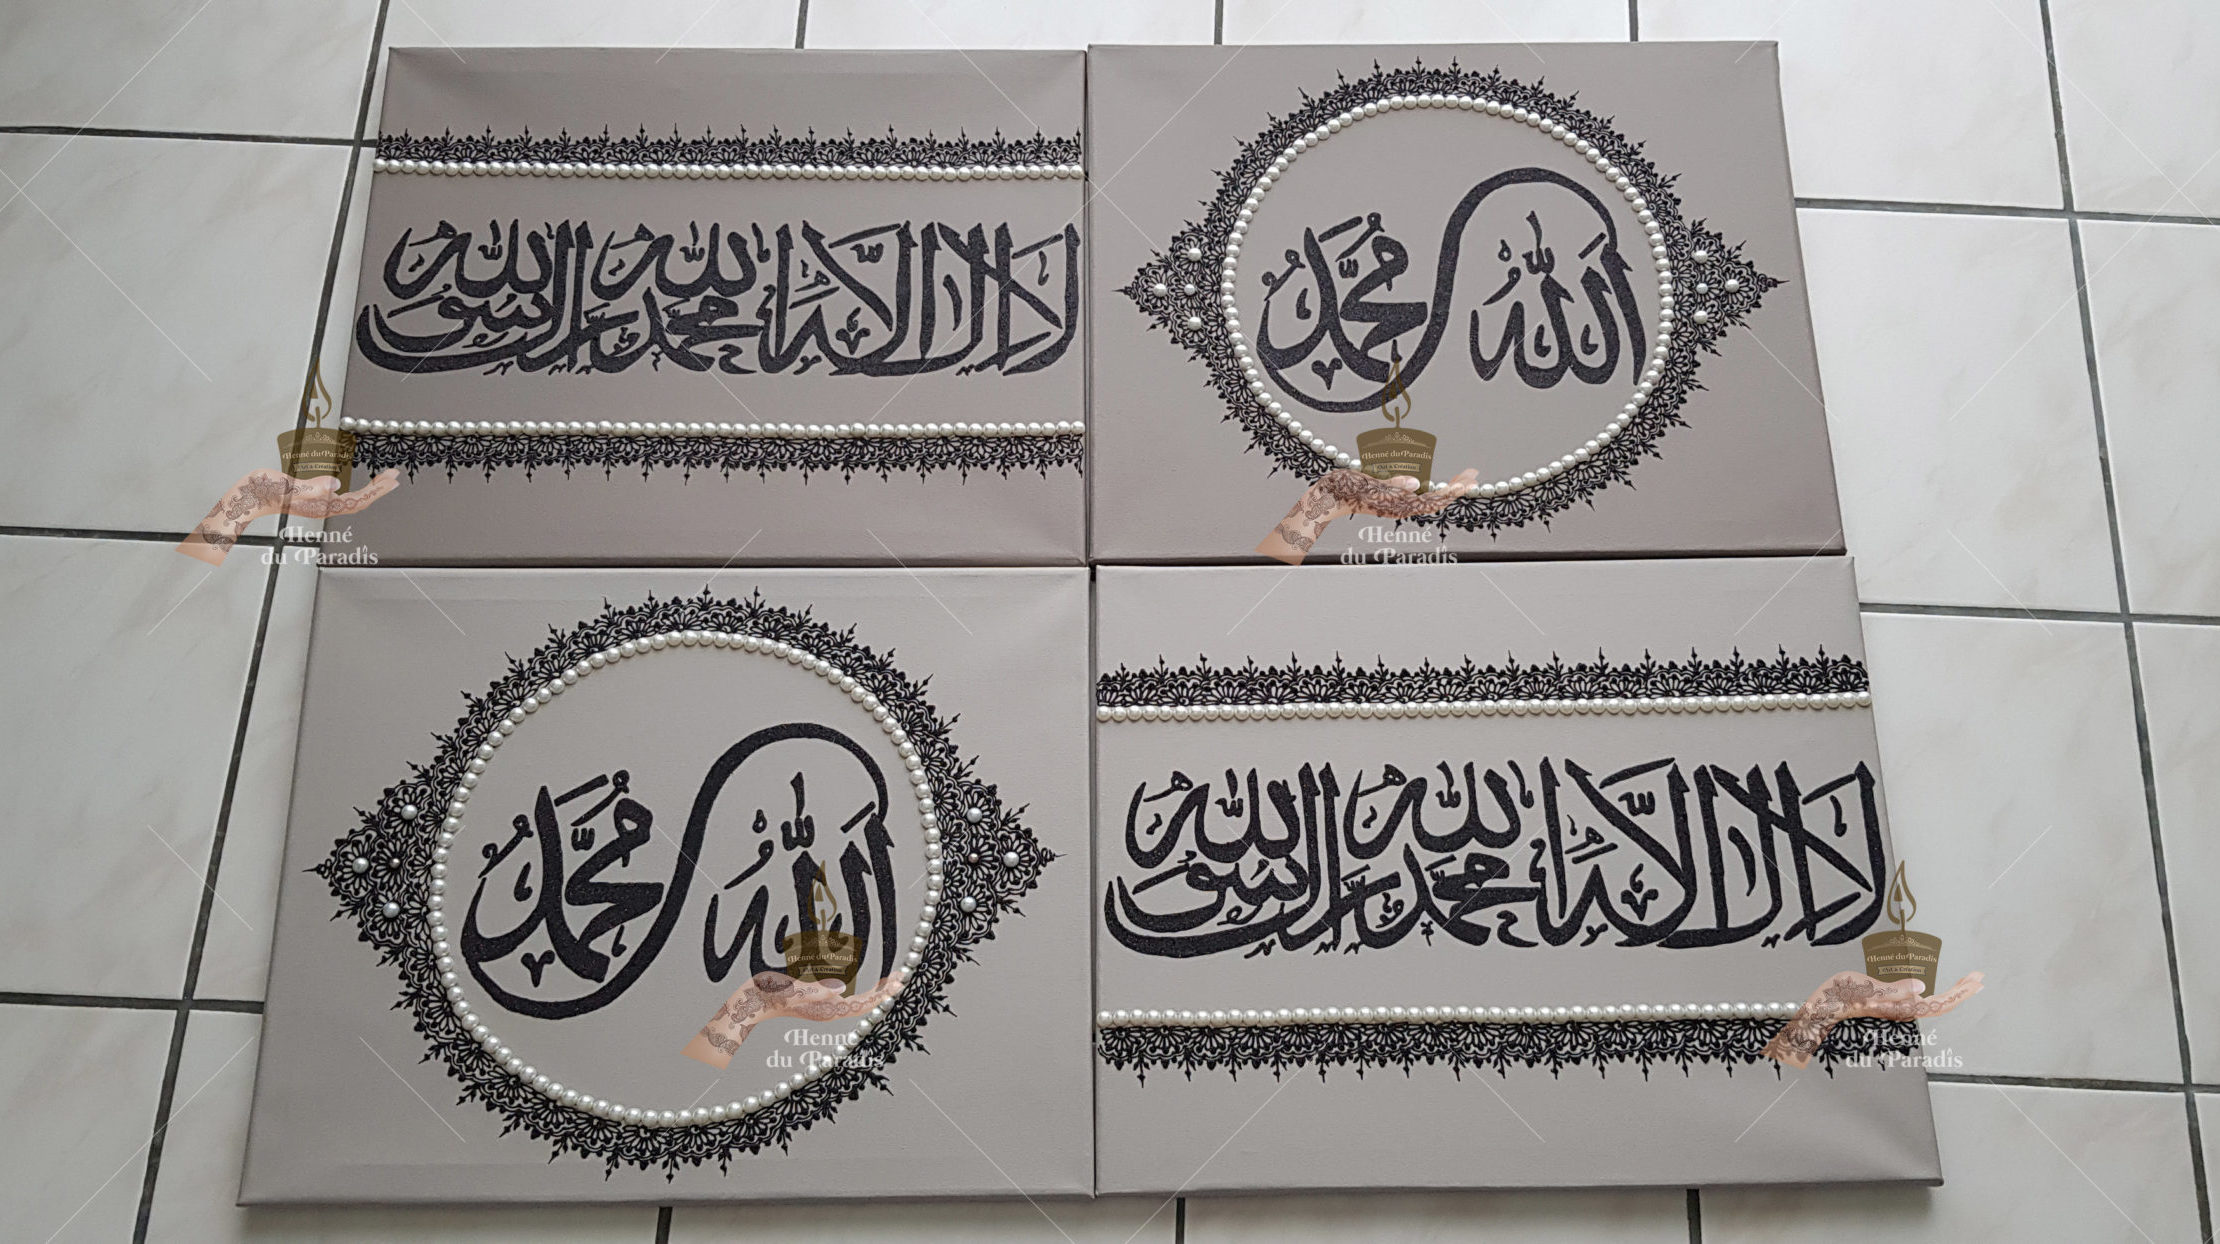 لا إله إلا الله محمد رسول الله
الله
محمد
الله
محمد
لا إله إلا الله محمد رسول الله
Henné du Paradis
Art & Création
Henné
du Paradis
Henné du Paradis
Art & Création
Henné
du Paradis
Henné du Paradis
Art & Création
Henné
du Paradis
Henné du Paradis
Art & Création
Henné
du Paradis